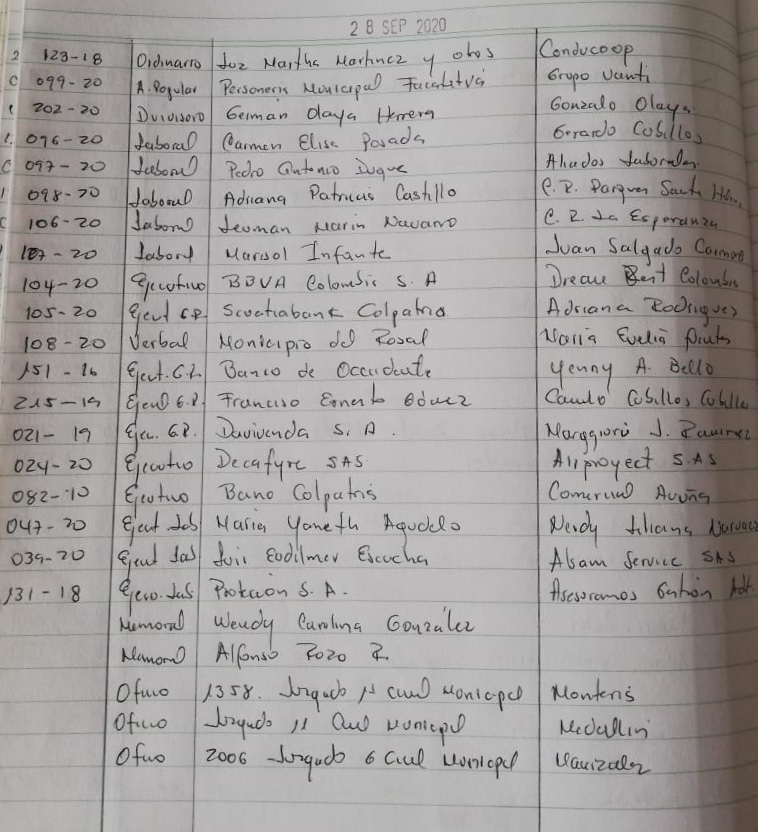 28 SEP 2020
123-18 Ordinario Luz Martha Martinez y otros Conducoop
099-20 A. Popular Personeria Municipal Facatativá Grupo Vanti
202-20 Divisorio German Olaya Herrera Gonzalo Olaya
096-20 Laboral Carmen Elisa Posada Gerardo Cubillos
097-20 Laboral Pedro Antonio Duque Aliados Laborales
098-20 Laboral Adriana Patricia Castillo C.R. Parques Santa Helena
106-20 Laboral Marin Navarro C.R. La Esperanza
107-20 Laboral Marisol Infante Juan Salgado
104-20 Ejecutivo BBVA Colombia S.A Rent Colombia
105-20 Ejecut G.R. Scotiabank Colpatria Adriana Rodriguez
108-20 Verbal Municipio del Rosal Maria Evelia
151-16 Eject. G.R. Banco de Occidente Yenny A. Bello
215-19 Ejecut G.R. Francisco Ernesto Gómez Camilo Cubillos Cubillos
021-19 Ejecu. G.R. Davivienda S.A. J. Ramirez
024-20 Ejecutivo Decafyre SAS Aliproyect S.AS
082-10 Ejecutivo Banco Colpatria Comercial Acuña
047-20 Ejecut Lab Maria Yaneth Agudelo Neidy Liliana Narvaez
039-20 Ejecut Lab Luis Eudilmer Escucha Alsam Service SAS
131-18 Ejecu. Lab Protección S.A. Asesoramos Gestión
Memorial Wendy Carolina González
Memorial Alfonso Rozo R.
Oficio 1358. Juzgado 11 Civil Municipal Monteria
Oficio Juzgado 11 Civil Municipal Medellin
Oficio 2006 Juzgado 6 Civil Municipal Manizales